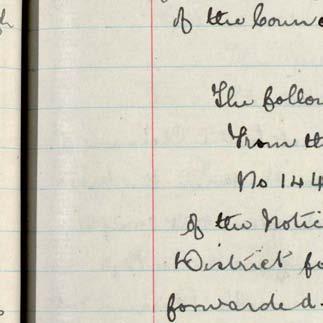 of the Counc
The follo
From th
No 144
of the Notic
District fo
forwarded.